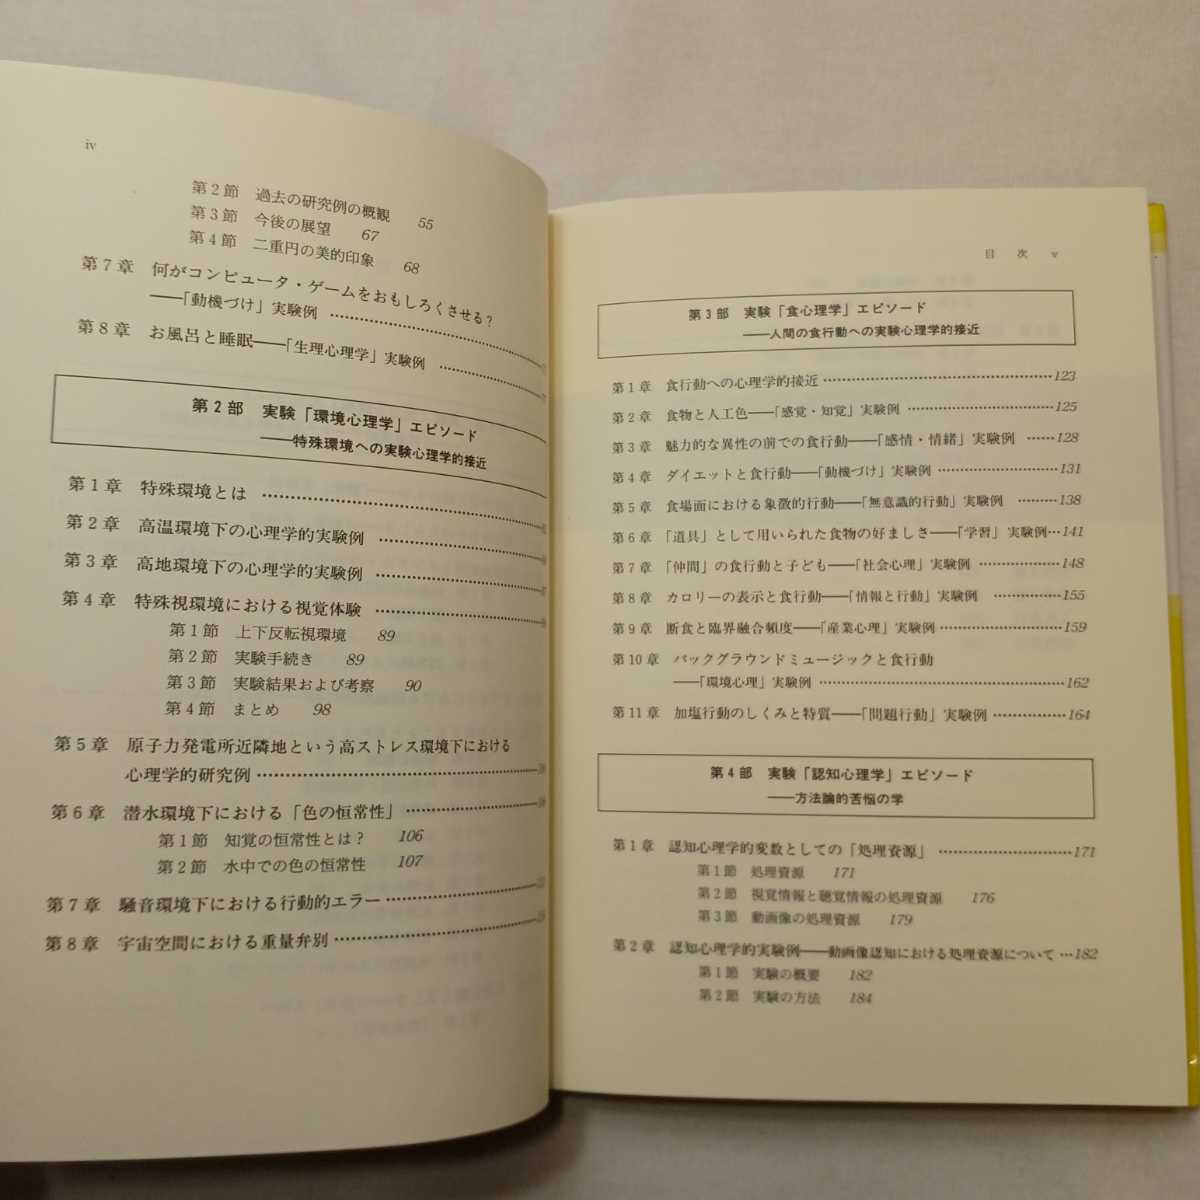 iv
第2節 過去の研究例の概観 55
第3節 今後の展望 67
第4節 二重円の美的印象 68
第7章 何がコンピュータ・ゲームをおもしろくさせる?
——「動機づけ」実験例 ……………………
第8章 お風呂と睡眠——「生理心理学」実験例 …………
第2部 実験「環境心理学」エピソード
——特殊環境への実験心理学的接近
第1章 特殊環境とは ……………………………
第2章 高温環境下の心理学的実験例 ………………
第3章 高地環境下の心理学的実験例 ………………
第4章 特殊視環境における視覚体験 ………………
第1節 上下反転視環境 89
第2節 実験手続き 89
第3節 実験結果および考察 90
第4節 まとめ 98
第5章 原子力発電所近隣地という高ストレス環境下における
心理学的研究例 ……………………………
第6章 潜水環境下における「色の恒常性」 ……………
第1節 知覚の恒常性とは? 106
第2節 水中での色の恒常性 107
第7章 騒音環境下における行動的エラー ……………
第8章 宇宙空間における重量弁別 …………………
目 次 v
第3部 実験「食心理学」エピソード
——人間の食行動への実験心理学的接近
第1章 食行動への心理学的接近 ……………………………123
第2章 食物と人工色——「感覚・知覚」実験例 …………………125
第3章 魅力的な異性の前での食行動——「感情・情緒」実験例 ……128
第4章 ダイエットと食行動——「動機づけ」実験例 ………………131
第5章 食場面における象徴的行動——「無意識的行動」実験例 ………138
第6章 「道具」として用いられた食物の好ましさ——「学習」実験例…141
第7章 「仲間」の食行動と子ども——「社会心理」実験例 …………148
第8章 カロリーの表示と食行動——「情報と行動」実験例 …………155
第9章 断食と臨界融合頻度——「産業心理」実験例 ………………159
第10章 バックグラウンドミュージックと食行動
——「環境心理」実験例 ………………………………162
第11章 加塩行動のしくみと特質——「問題行動」実験例 …………164
第4部 実験「認知心理学」エピソード
——方法論的苦悩の学
第1章 認知心理学的変数としての「処理資源」 ………………171
第1節 処理資源 171
第2節 視覚情報と聴覚情報の処理資源 176
第3節 動画像の処理資源 179
第2章 認知心理学的実験例——動画像認知における処理資源について …182
第1節 実験の概要 182
第2節 実験の方法 184